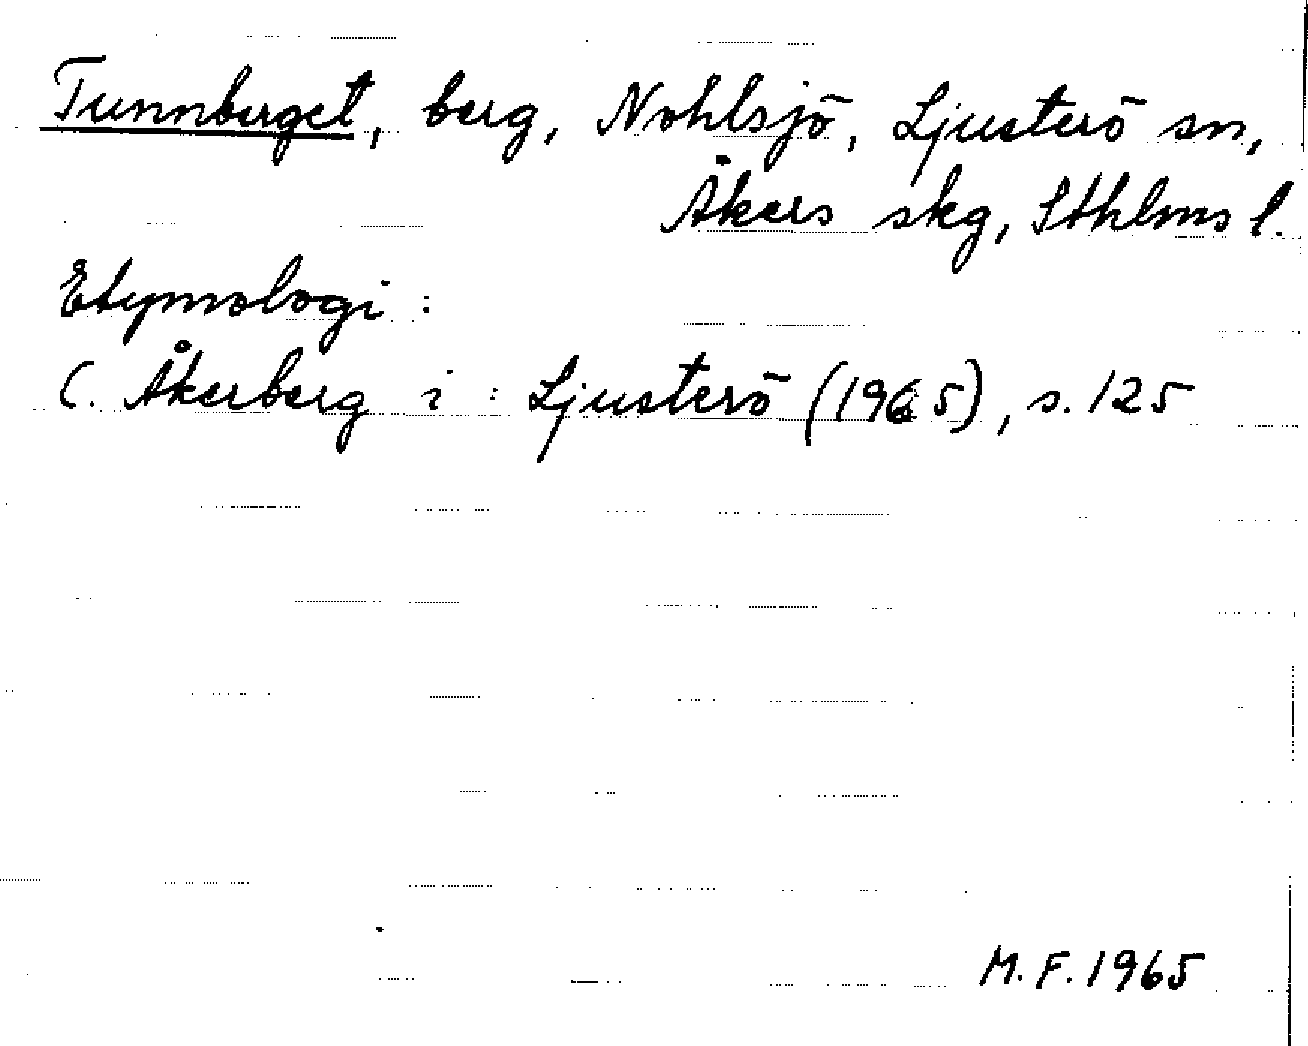 Tunnberget, berg, Nohlsjö, Ljusterö sn,
Åkers skg, Sthlms l.
Etymologi:
C. Åkerberg i: Ljusterö (1965), s. 125
M.F. 1965